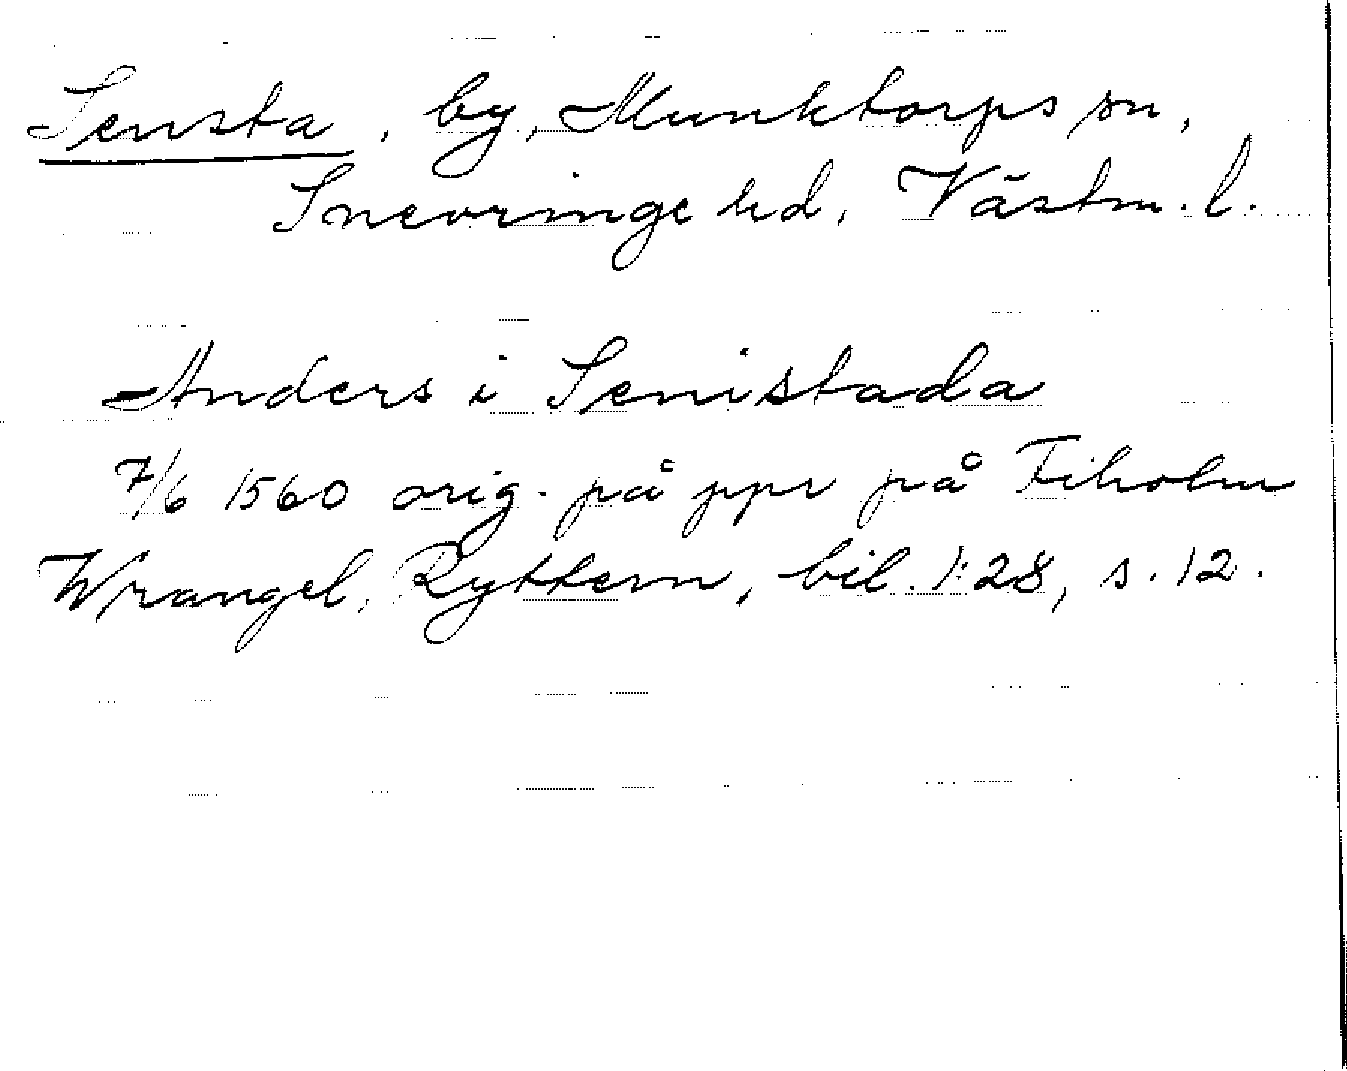 Sensta, by, Munktorps sn,
Snevringe hd, Västm. l.
Anders i Senistada
7/6 1560 orig. på ppr på Fiholm
Wrangel, Ryttern, bil. 1:28, s. 12.